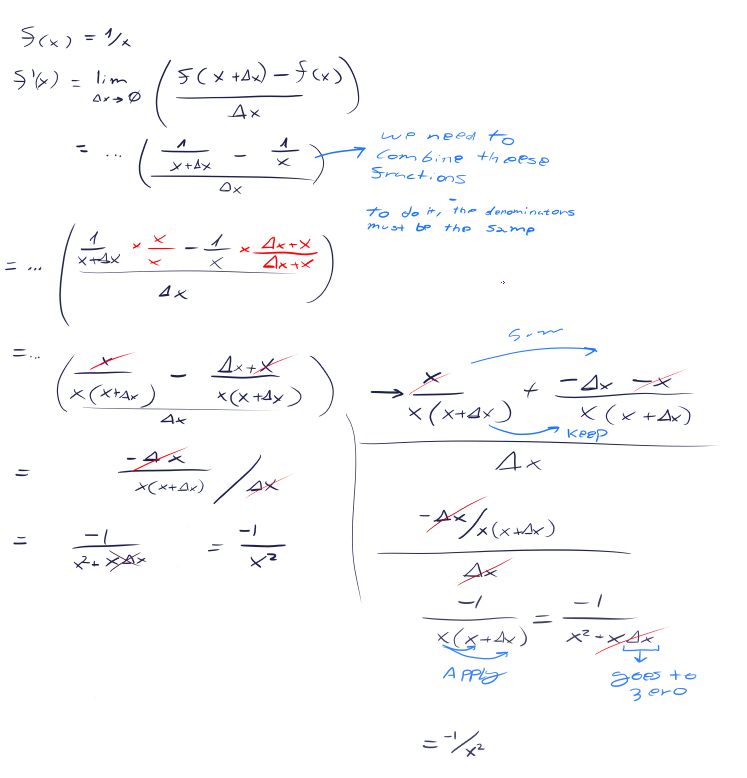 f(x) = 1/x
f'(x) = lim Δx→0 ( (f(x+Δx) - f(x)) / Δx )
= ... ( (1/(x+Δx) - 1/x) / Δx )
we need to
combine theese
fractions
to do it, the denominators
must be the same
= ... ( (1/(x+Δx) × x/x - 1/x × (Δx+x)/(Δx+x)) / Δx )
=... ( (x/(x(x+Δx)) - (Δx+x)/(x(x+Δx))) / Δx )
= (-Δx)/(x(x+Δx)) / Δx
= -1/(x²+xΔx) = -1/x²
sum
→ (x/(x(x+Δx)) + (-Δx -x)/(x(x+Δx))) / Δx
keep
(-Δx/x(x+Δx)) / Δx
-1/(x(x+Δx)) = -1/(x²+xΔx)
Apply
goes to
zero
= -1/x²